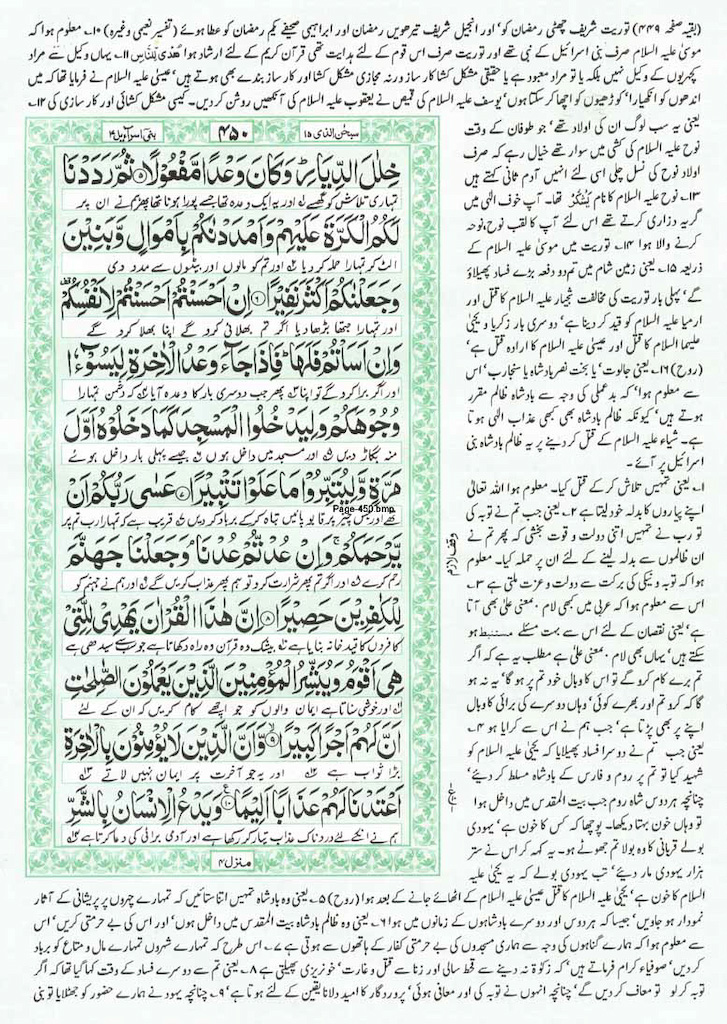 (بقیہ صفحہ ۴۴۹) توریت شریف چھٹی رمضان کو' اور انجیل شریف تیرھویں رمضان اور ابراہیمی صحیفے یکم رمضان کو عطا ہوئے (تفسیر نعیمی وغیرہ) ۱۰۔ معلوم ہوا کہ
موسیٰ علیہ السلام صرف بنی اسرائیل کے نبی تھے اور توریت صرف اس قوم کے لئے ہدایت تھی قرآن کریم کے لئے ارشاد ہوا هُدًى لِّلنَّاسِ ۱۱۔ یہاں وکیل سے مراد
کچہریوں کے وکیل نہیں بلکہ یا تو مراد معبود ہے یا حقیقی مشکل کشا کار ساز ورنہ مجازی مشکل کشا اور کار ساز بندے بھی ہوتے ہیں' عیسیٰ علیہ السلام نے فرمایا تھا کہ میں
اندھوں کو انکھیارا' کوڑھیوں کو اچھا کر سکتا ہوں' یوسف علیہ السلام کی قمیص نے یعقوب علیہ السلام کی آنکھیں روشن کر دیں۔ کیسی مشکل کشائی اور کار سازی کی ۱۲۔
یعنی یہ سب لوگ ان کی اولاد تھے' جو طوفان کے وقت
نوح علیہ السلام کی کشتی میں سوار تھے خیال رہے کہ صرف
اولاد نوح کی نسل چلی اسی لئے انہیں آدم ثانی کہتے ہیں
۱۳۔ نوح علیہ السلام کا نام یَشْکُرُ تھا۔ آپ خوف الٰہی میں
گریہ و زاری کرتے تھے اس لئے آپ کا لقب نوح' نوحہ
کرنے والا ہوا ۱۴۔ توریت میں موسیٰ علیہ السلام کے
ذریعہ ۱۵۔ یعنی زمین شام میں تم دو دفعہ بڑے فساد پھیلاؤ
گے' پہلی بار توریت کی مخالفت شعیاء علیہ السلام کا قتل اور
ارمیا علیہ السلام کو قید کر دینا ہے' دوسری بار زکریا و یحییٰ
علیہما السلام کا قتل اور عیسیٰ علیہ السلام کا ارادہ قتل ہے'
(روح) ۱۶۔ یعنی جالوت' یا بخت نصر بادشاہ یا سنجارب' اس
سے معلوم ہوا' کہ بدعملی کی وجہ سے بادشاہ ظالم مقرر
ہوتے ہیں' کیونکہ ظالم بادشاہ بھی کبھی عذاب الٰہی ہوتا
ہے۔ شیاء علیہ السلام کے قتل کر دینے پر یہ ظالم بادشاہ بنی
اسرائیل پر آئے۔
سبحٰن الذی ۱۵
۴۵۰
بنی اسرآءیل ۱۷
خِلٰلَ الدِّیَارِؕ وَ كَانَ وَعْدًا مَّفْعُوْلًا۝۵ ثُمَّ رَدَدْنَا
تمہاری تلاش کو گھسے اور یہ ایک وعدہ تھا جسے پورا ہونا تھا پھر ہم نے ان پر
لَكُمُ الْكَرَّةَ عَلَیْهِمْ وَ اَمْدَدْنٰكُمْ بِاَمْوَالٍ وَّ بَنِیْنَ
الٹ کر تمہارا حملہ کر دیا اور تم کو مالوں اور بیٹوں سے مدد دی
وَ جَعَلْنٰكُمْ اَكْثَرَ نَفِیْرًا۝۶ اِنْ اَحْسَنْتُمْ اَحْسَنْتُمْ لِاَنْفُسِكُمْ
اور تمہارا جتھا بڑھا دیا اگر تم بھلائی کرو گے اپنا بھلا کرو گے
وَ اِنْ اَسَاْتُمْ فَلَهَاؕ فَاِذَا جَآءَ وَعْدُ الْاٰخِرَةِ لِیَسُوْٓءٗا
اور اگر برا کرو گے تو اپنا پھر جب دوسری بار کا وعدہ آیا کہ دشمن تمہارا
وُجُوْهَكُمْ وَ لِیَدْخُلُوا الْمَسْجِدَ كَمَا دَخَلُوْهُ اَوَّلَ
منہ بگاڑ دیں اور مسجد میں داخل ہوں جیسے پہلی بار داخل ہوئے
مَرَّةٍ وَّ لِیُتَبِّرُوْا مَا عَلَوْا تَتْبِیْرًا۝۷ عَسٰى رَبُّكُمْ اَنْ
تھے اور جس چیز پر قابو پائیں تباہ کر کے برباد کر دیں قریب ہے کہ تمہارا رب تم پر
Page-450.bmp
یَّرْحَمَكُمْۚ وَ اِنْ عُدْتُّمْ عُدْنَاۘ وَ جَعَلْنَا جَهَنَّمَ
رحم کرے اور اگر تم پھر شرارت کرو تو ہم پھر عذاب کریں گے اور ہم نے جہنم کو
وقف لازم
لِلْكٰفِرِیْنَ حَصِیْرًا۝۸ اِنَّ هٰذَا الْقُرْاٰنَ یَهْدِیْ لِلَّتِیْ
کافروں کا قید خانہ بنایا ہے بیشک یہ قرآن وہ راہ دکھاتا ہے جو سب سے سیدھی ہے
هِیَ اَقْوَمُ وَ یُبَشِّرُ الْمُؤْمِنِیْنَ الَّذِیْنَ یَعْمَلُوْنَ الصّٰلِحٰتِ
اور خوشی سناتا ہے ایمان والوں کو جو اچھے کام کریں کہ ان کے لئے
اَنَّ لَهُمْ اَجْرًا كَبِیْرًا۝۹ وَّ اَنَّ الَّذِیْنَ لَا یُؤْمِنُوْنَ بِالْاٰخِرَةِ
بڑا ثواب ہے اور یہ جو آخرت پر ایمان نہیں لاتے
اَعْتَدْنَا لَهُمْ عَذَابًا اَلِیْمًا۝۱۰ وَ یَدْعُ الْاِنْسَانُ بِالشَّرِّ
ہم نے انکے لئے دردناک عذاب تیار کر رکھا ہے اور آدمی برائی کی دعا کرتا ہے
منزل ۴
۱۔ یعنی تمہیں تلاش کر کے قتل کیا۔ معلوم ہوا اللہ تعالیٰ
اپنے پیاروں کا بدلہ خود لیتا ہے ۲۔ یعنی جب تم نے توبہ کی
تو رب نے تمہیں اتنی دولت و قوت بخشی کہ پھر تم نے
ان ظالموں سے بدلہ لینے کے لئے ان پر حملہ کیا۔ معلوم
ہوا کہ توبہ و نیکی کی برکت سے دولت و عزت ملتی ہے ۳۔
اس سے معلوم ہوا کہ عربی میں کبھی لام . معنی علیٰ بھی آتا
ہے' یعنی نقصان کے لئے اس سے بہت مسئلے مستنبط ہو
سکتے ہیں' یہاں بھی لام . معنی علیٰ ہے مطلب یہ ہے کہ اگر
تم برے کام کرو گے تو اس کا وبال خود تم پر ہو گا' یہ نہ ہو
گا کہ کرو تم اور بھرے کوئی' وہاں دوسرے کی برائی کا وبال
اپنے پر بھی پڑتا ہے' جب ہم نے اس سے کرایا ہو ۴۔
یعنی جب تم نے دوسرا فساد پھیلایا کہ یحییٰ علیہ السلام کو
شہید کیا تو تم پر روم و فارس کے بادشاہ مسلط کر دیئے'
چنانچہ ہر دوس شاہ روم جب بیت المقدس میں داخل ہوا
تو وہاں خون بہتا دیکھا۔ پوچھا کہ کس کا خون ہے' یہودی
بولے قربانی کا وہ بولا تم جھوٹے ہو۔ یہ کہہ کر اس نے ستر
ہزار یہودی مار دیئے' تب یہودی بولے کہ یہ یحییٰ علیہ
السلام کا خون ہے' یحییٰ علیہ السلام کا قتل عیسیٰ علیہ السلام کے اٹھائے جانے کے بعد ہوا (روح) ۵۔ یعنی وہ بادشاہ تمہیں اتنا ستائیں کہ تمہارے چہروں پر پریشانی کے آثار
نمودار ہو جاویں' جیسا کہ ہر دوس اور دوسرے بادشاہوں کے زمانوں میں ہوا ۶۔ یعنی وہ ظالم بادشاہ بیت المقدس میں داخل ہوں' اور اس کی بے حرمتی کریں' اس
سے معلوم ہوا کہ ہمارے گناہوں کی وجہ سے ہماری مسجدوں کی بے حرمتی کفار کے ہاتھوں سے ہوتی ہے ۷۔ اس طرح کہ تمہارے شہروں تمہارے مال و متاع کو برباد
کر دیں' صوفیاء کرام فرماتے ہیں' کہ زکوٰۃ نہ دینے سے قحط سالی اور زنا سے قتل و غارت' خونریزی پھیلتی ہے ۸۔ یعنی تم سے دوسرے فساد کے وقت کہا گیا تھا کہ اگر
توبہ کر لو تو معاف کر دیں گے' چنانچہ انہوں نے توبہ کی اور معافی ہوئی' پروردگار کا امید دلانا یقین کے لئے ہوتا ہے' ۹۔ چنانچہ یہود نے ہمارے حضور کو جھٹلایا تو بنی